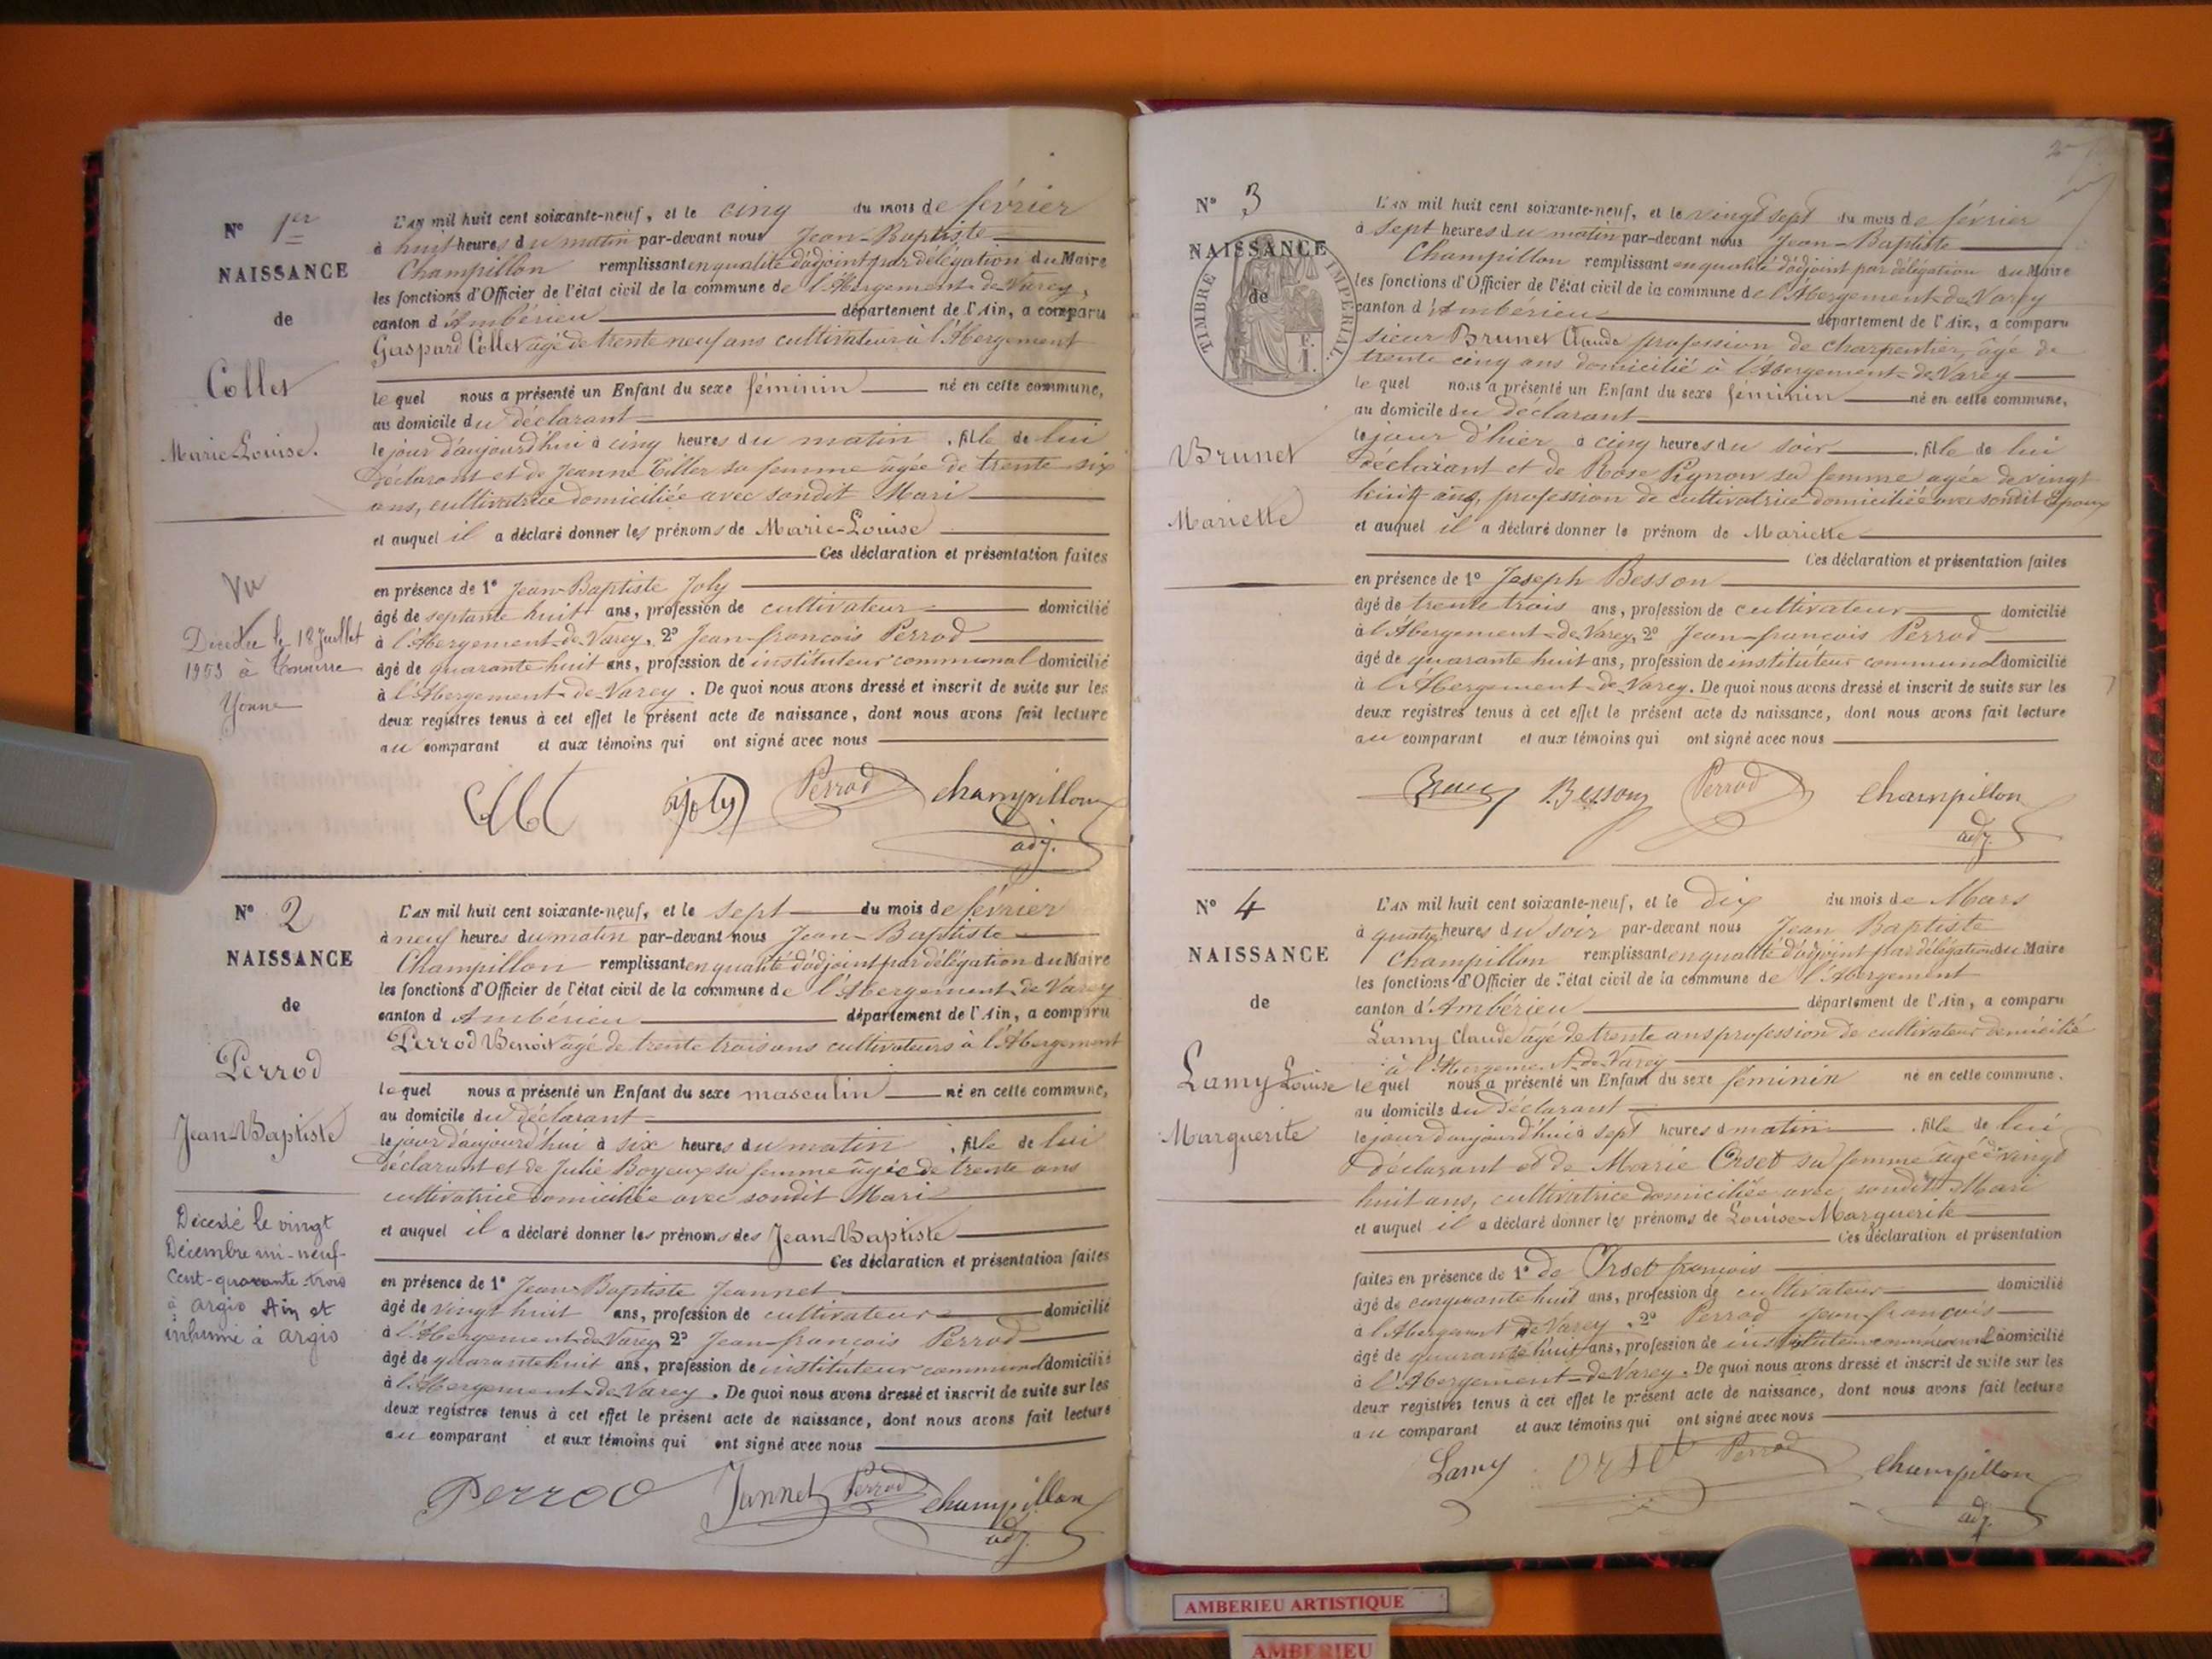 N° 1er
NAISSANCE
de
Collet
Marie-Louise.
Vu
Décédée le 18 Juillet
1953 à Tonnerre
Yonne
L'AN mil huit cent soixante-neuf, et le cinq du mois de février
à huit heures du matin par-devant nous Jean-Baptiste
Champillon remplissant en qualité d'adjoint par délégation du Maire
les fonctions d'Officier de l'état civil de la commune de l'Abergement-de-Varey,
canton d'Ambérieu département de l'Ain, a comparu
Gaspard Collet âgé de trente neuf ans cultivateur à l'Abergement
lequel nous a présenté un Enfant du sexe féminin né en cette commune,
au domicile du déclarant
le jour d'aujourd'hui à cinq heures du matin, fille de lui
déclarant et de Jeanne Tiller sa femme âgée de trente-six
ans, cultivatrice domiciliée avec sondit Mari
et auquel il a déclaré donner les prénoms de Marie-Louise
Ces déclaration et présentation faites
en présence de 1° Jean-Baptiste Joly
âgé de septante huit ans, profession de cultivateur domicilié
à l'Abergement-de-Varey, 2° Jean-françois Perrod
âgé de quarante huit ans, profession de instituteur communal domicilié
à l'Abergement-de-Varey. De quoi nous avons dressé et inscrit de suite sur les
deux registres tenus à cet effet le présent acte de naissance, dont nous avons fait lecture
au comparant et aux témoins qui ont signé avec nous
joly Perrod champillon
adj.
N° 2
NAISSANCE
de
Perrod
Jean-Baptiste
Décédé le vingt
Décembre mi-neuf-
cent-quarante-trois
à Argis Ain et
inhumé à Argis
L'AN mil huit cent soixante-neuf, et le sept du mois de février
à neuf heures du matin par-devant nous Jean-Baptiste
Champillon remplissant en qualité d'adjoint par délégation du Maire
les fonctions d'Officier de l'état civil de la commune de l'Abergement-de Varey
canton d'Ambérieu département de l'Ain, a comparu
Perrod Benoit âgé de trente trois ans cultivateurs à l'Abergement
lequel nous a présenté un Enfant du sexe masculin né en cette commune,
au domicile du déclarant
le jour d'aujourd'hui à six heures du matin, fils de lui
déclarant et de Julie Boyeux sa femme âgée de trente ans
cultivatrice domiciliée avec sondit Mari
et auquel il a déclaré donner les prénoms des Jean-Baptiste
Ces déclaration et présentation faites
en présence de 1° Jean-Baptiste Jeannet
âgé de vingt huit ans, profession de cultivateur domicilié
à l'Abergement-de-Varey, 2° Jean-françois Perrod
âgé de quarante huit ans, profession de instituteur communal domicilié
à l'Abergement-de-Varey. De quoi nous avons dressé et inscrit de suite sur les
deux registres tenus à cet effet le présent acte de naissance, dont nous avons fait lecture
au comparant et aux témoins qui ont signé avec nous
Perrod Jannet Perrod champillon
adj.
2
N° 3
NAISSANCE
de
TIMBRE IMPÉRIAL.
Brunet
Mariette
L'AN mil huit cent soixante-neuf, et le vingt sept du mois de février
à sept heures du matin par-devant nous Jean-Baptiste
Champillon remplissant en qualité d'adjoint par délégation du Maire
les fonctions d'Officier de l'état civil de la commune de l'Abergement-de-Varey
canton d'Ambérieu département de l'Ain, a comparu
sieur Brunet Claude profession de charpentier, âgé de
trente cinq ans domicilié à l'Abergement-de-Varey
lequel nous a présenté un Enfant du sexe féminin né en cette commune,
au domicile du déclarant
le jour d'hier à cinq heures du soir, fille de lui
déclarant et de Rose Pignon sa femme agée de vingt
huit ans, profession de cultivatrice domiciliée avec sondit Epoux
et auquel il a déclaré donner le prénom de Mariette
Ces déclaration et présentation faites
en présence de 1° Joseph Besson
âgé de trente trois ans, profession de cultivateur domicilié
à l'Abergement-de-Varey, 2° Jean-françois Perrod
âgé de quarante huit ans, profession de instituteur communal domicilié
à l'Abergement-de-Varey. De quoi nous avons dressé et inscrit de suite sur les
deux registres tenus à cet effet le présent acte de naissance, dont nous avons fait lecture
au comparant et aux témoins qui ont signé avec nous
Besson Perrod champillon
adj.
N° 4
NAISSANCE
de
Lamy Louise
Marguerite
L'AN mil huit cent soixante-neuf, et le dix du mois de Mars
à quatre heures du soir par-devant nous Jean Baptiste
Champillon remplissant en qualité d'adjoint par délégation du Maire
les fonctions d'Officier de l'état civil de la commune de l'Abergement
canton d'Ambérieu département de l'Ain, a comparu
Lamy Claude âgé de trente ans profession de cultivateur domicilié
à l'Abergement-de-Varey
lequel nous a présenté un Enfant du sexe féminin né en cette commune.
au domicile du déclarant
le jour d'aujourd'hui à sept heures d matin, fille de lui
déclarant et de Marie Orset sa femme âgée de vingt
huit ans, cultivatrice domiciliée avec sondit Mari
et auquel il a déclaré donner les prénoms de Louise-Marguerite
Ces déclaration et présentation
faites en présence de 1° de Orset françois
âgé de cinquante huit ans, profession de cultivateur domicilié
à l'Abergement de Varey, 2° Perrod Jean-françois
âgé de quarante huit ans, profession de instituteur communal domicilié
à l'Abergement-de Varey. De quoi nous avons dressé et inscrit de suite sur les
deux registres tenus à cet effet le présent acte de naissance, dont nous avons fait lecture
au comparant et aux témoins qui ont signé avec nous
Lamy orset Perrod champillon
adj.
AMBERIEU ARTISTIQUE
AMBERIEU